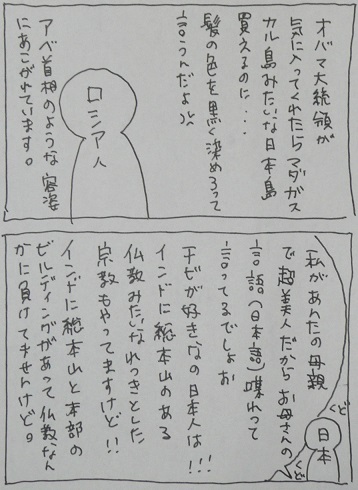 オバマ大統領が
気に入ってくれたらマダガス
カル島みたいな日本島
買えるのに・・・
髪の色を黒く染めろって
言うんだよ
ロシア人
アベ首相のような容姿
にあこがれています。
私があんたの母親
で超美人だからお母さんの
言語(日本語)喋れって
言ってるでしょお
チビが好きなの日本人は!!!
インドに総本山のある
仏教みたいなれっきとした
宗教もやってますけど!!
インドに総本山と本部の
ビルディングがあって仏教なん
かに負けてませんけど。
くど
日本
くど